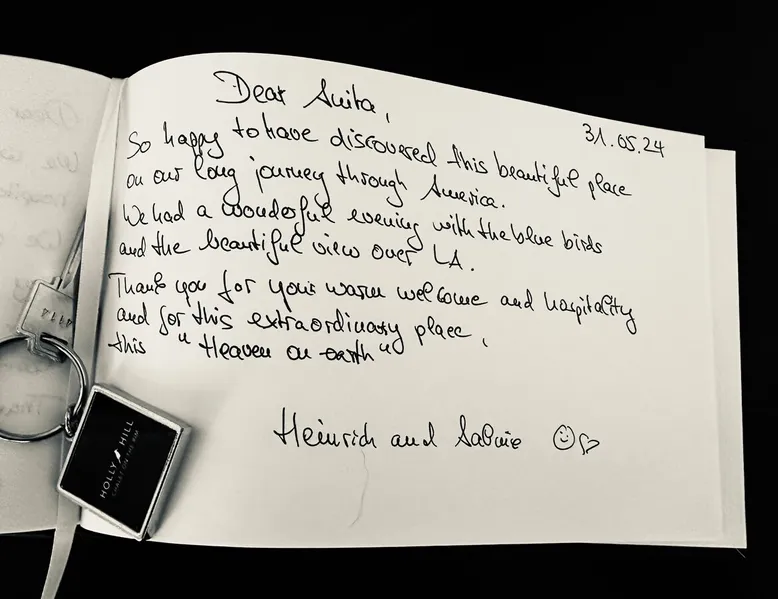 Dear Anita,
31.05.24
So happy to have discovered this beautiful place
on our long journey through America.
We had a wonderful evening with the blue birds
and the beautiful view over LA.
Thank you for your warm welcome and hospitality
and for this extraordinary place,
this "Heaven on earth"
Heinrich and Sabine ☺♡
HOLLY HILL
CHALET ON THE RIM